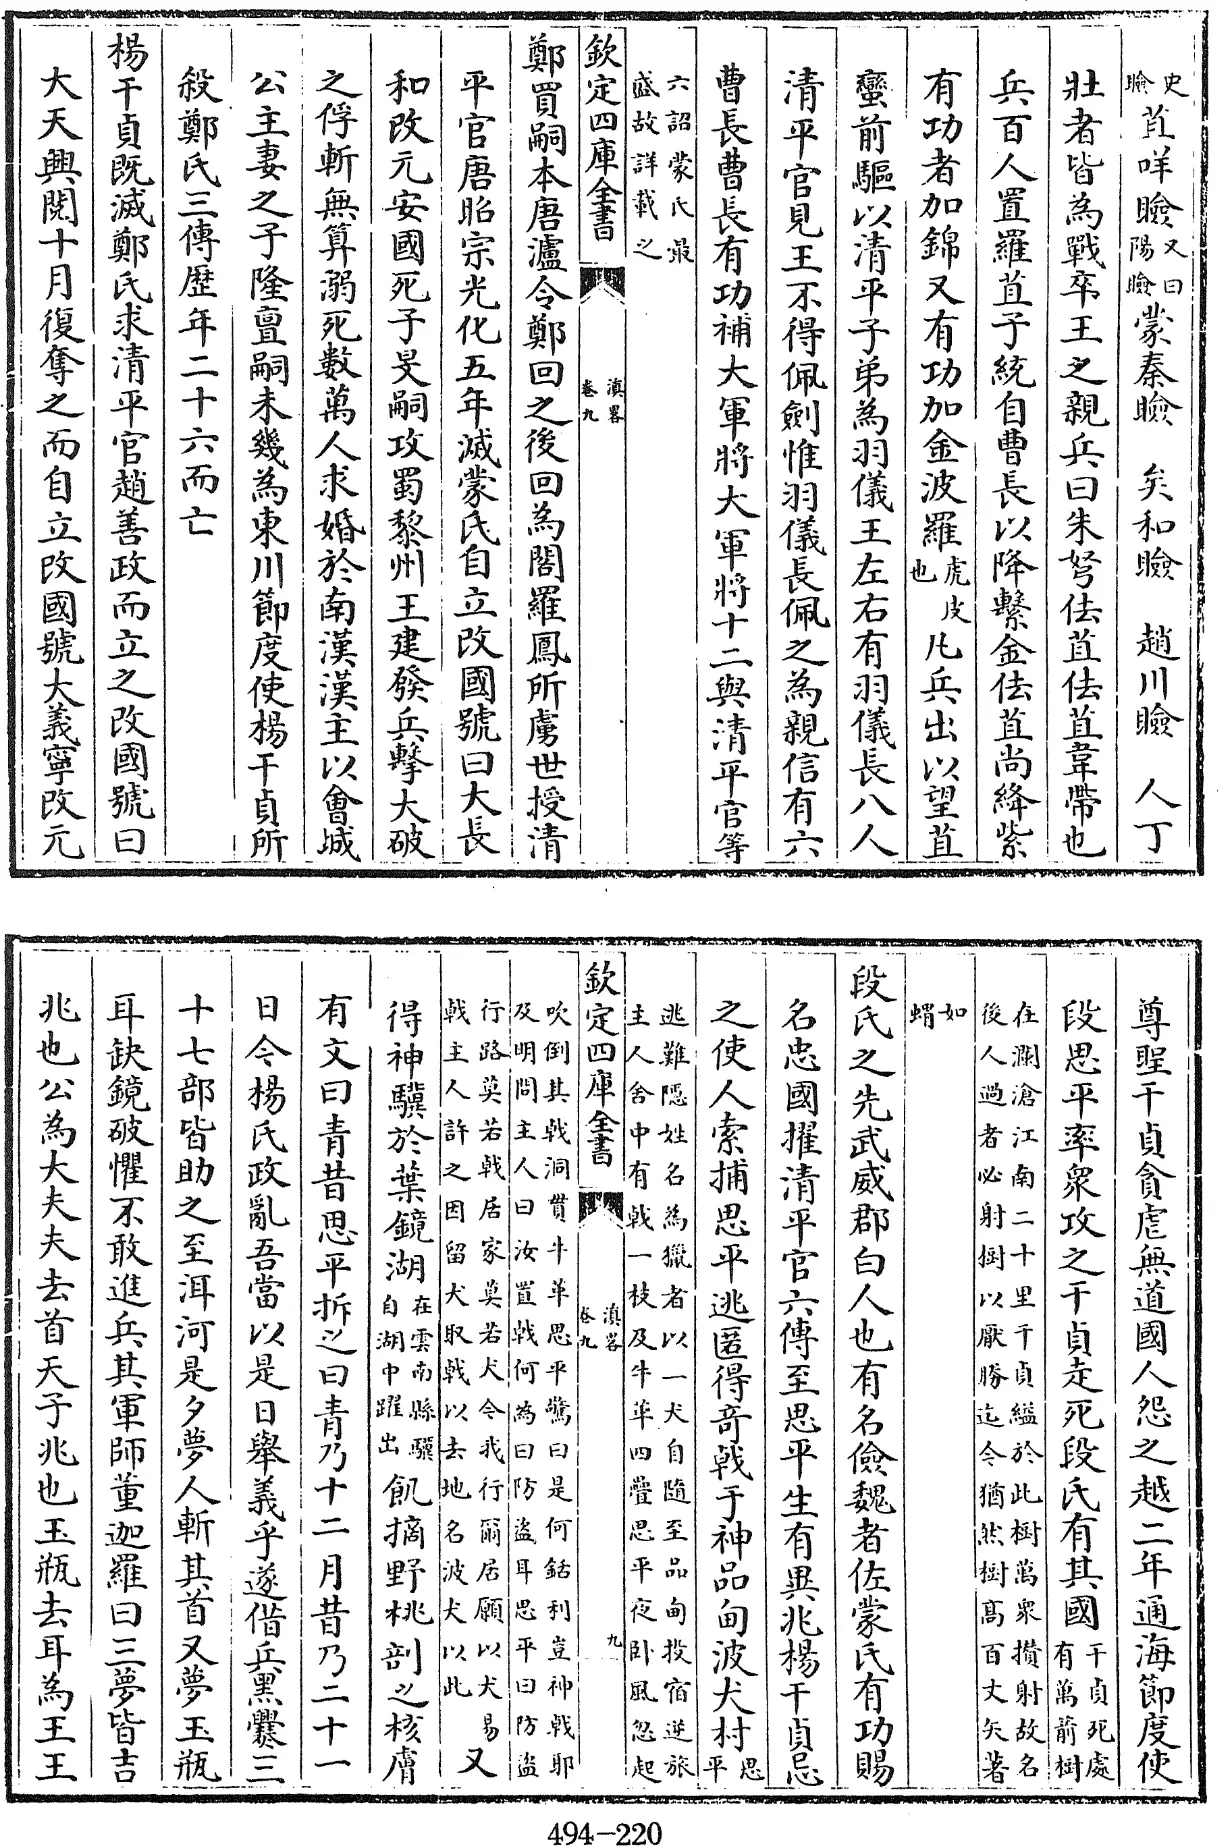 史瞼苴咩瞼又曰陽瞼蒙秦瞼　矣和瞼　趙川瞼　人丁
壯者皆為戰卒王之親兵曰朱弩佉苴佉苴韋帶也
兵百人置羅苴子統自曹長以降繫金佉苴尚絳紫
有功者加錦又有功加金波羅虎皮也凡兵出以望苴
蠻前驅以清平子弟為羽儀王左右有羽儀長八人
清平官見王不得佩劍惟羽儀長佩之為親信有六
曹長曹長有功補大軍將大軍將十二與清平官等
六詔蒙氏最
盛故詳載之
欽定四庫全書　滇畧卷九
鄭買嗣本唐瀘令鄭回之後回為閣羅鳳所虜世授清
平官唐昭宗光化五年滅蒙氏自立改國號曰大長
和改元安國死子旻嗣攻蜀黎州王建發兵擊大破
之俘斬無算溺死數萬人求婚於南漢漢主以會城
公主妻之子隆亶嗣未幾為東川節度使楊干貞所
殺鄭氏三傳歷年二十六而亡
楊干貞既滅鄭氏求清平官趙善政而立之改國號曰
大天興閱十月復奪之而自立改國號大義寧改元
尊聖干貞貪虐無道國人怨之越二年通海節度使
段思平率衆攻之干貞走死段氏有其國干貞死處有萬箭樹
在瀾滄江南二十里干貞縊於此樹萬衆攅射故名
後人過者必射樹以厭勝迄今猶然樹髙百丈矢著
如蝟
段氏之先武威郡白人也有名儉魏者佐蒙氏有功賜
名忠國擢清平官六傳至思平生有異兆楊干貞忌
之使人索捕思平逃匿得奇戟于神品甸波犬村思平
逃難隱姓名為獵者以一犬自隨至品甸投宿逆旅
主人舍中有戟一枝及牛革四疊思平夜卧風忽起
欽定四庫全書　滇畧卷九　九
吹倒其戟洞貫牛革思平驚曰是何銛利豈神戟耶
及明問主人曰汝置戟何為曰防盜耳思平曰防盜
行路莫若戟居家莫若犬今我行爾居願以犬易
戟主人許之因留犬取戟以去地名波犬以此又
得神驥於葉鏡湖在雲南縣驥自湖中躍出飢摘野桃剖之核膚
有文曰青昔思平拆之曰青乃十二月昔乃二十一
日今楊氏政亂吾當以是日舉義乎遂借兵黑爨三
十七部皆助之至洱河是夕夢人斬其首又夢玉瓶
耳缺鏡破懼不敢進兵其軍師董迦羅曰三夢皆吉
兆也公為大夫夫去首天子兆也玉瓶去耳為王王
494-220